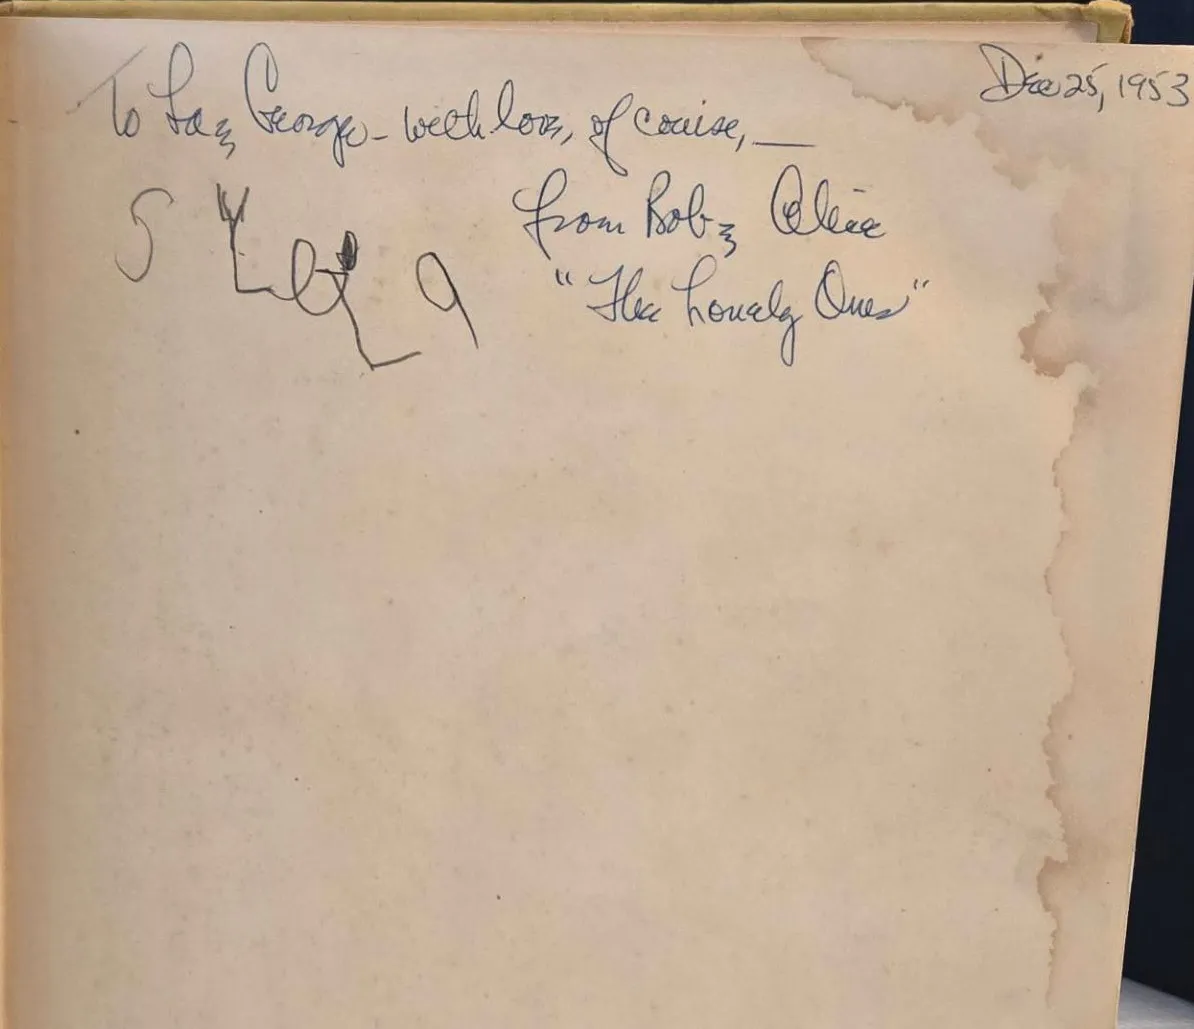 Dec 25, 1953
To Fa & George - with love, of course, —
from Bob & Alice
"The Lonely Ones"